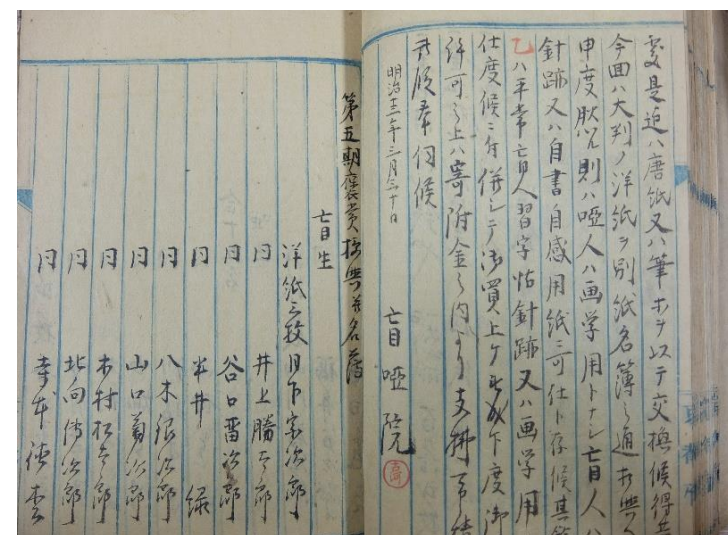 変是迄ハ唐紙又ハ筆ホヲ以テ交換候得共
今回ハ大判ノ洋紙ヲ別紙名簿之通ホ興
申度然ル則ハ唖人ハ画学用トナシ盲人ハ
針跡又ハ自書自感用紙ニ可仕ト存候其
乙ハ平常盲人習字帖針跡又ハ画学用
仕度候ニ付併シテ御買上ケ下度御
許可之上ハ寄附金之内より支拂
此段奉伺候
明治十三年三月三十日
盲唖院
第五期褒賞授與并名簿
盲生
洋紙三枚 日下宗次郎
同 井上勝三郎
同 谷口留次郎
同 半井緑
同 八木銀次郎
同 山口菊次郎
同 木村松三郎
同 北向傳次郎
同